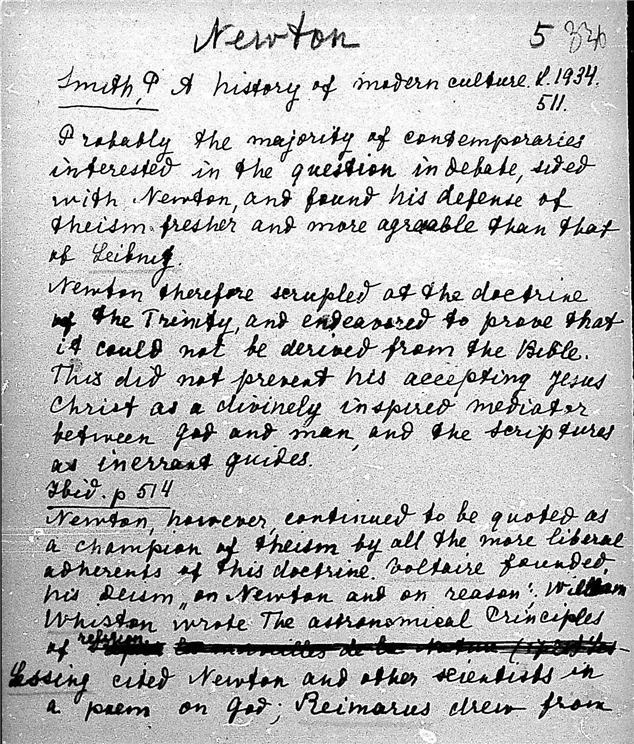 Newton 5
Smith, P A history of modern culture. N. 1934.
511.
Probably the majority of contemporaries
interested in the question in debate, sided
with Newton, and found his defense of
theism fresher and more agreeable than that
of Leibniz.
Newton therefore scrupled at the doctrine
of the Trinity, and endeavored to prove that
it could not be derived from the Bible.
This did not prevent his accepting Jesus
Christ as a divinely inspired mediator
between God and man, and the scriptures
as inerrant guides.
Ibid. p 514
Newton, however, continued to be quoted as
a champion of theism by all the more liberal
adherents of this doctrine. Voltaire founded
his deism „on Newton and on reason". William
Whiston wrote The astronomical Principles
of religion
Lessing cited Newton and other scientists in
a poem on God; Reimarus drew from